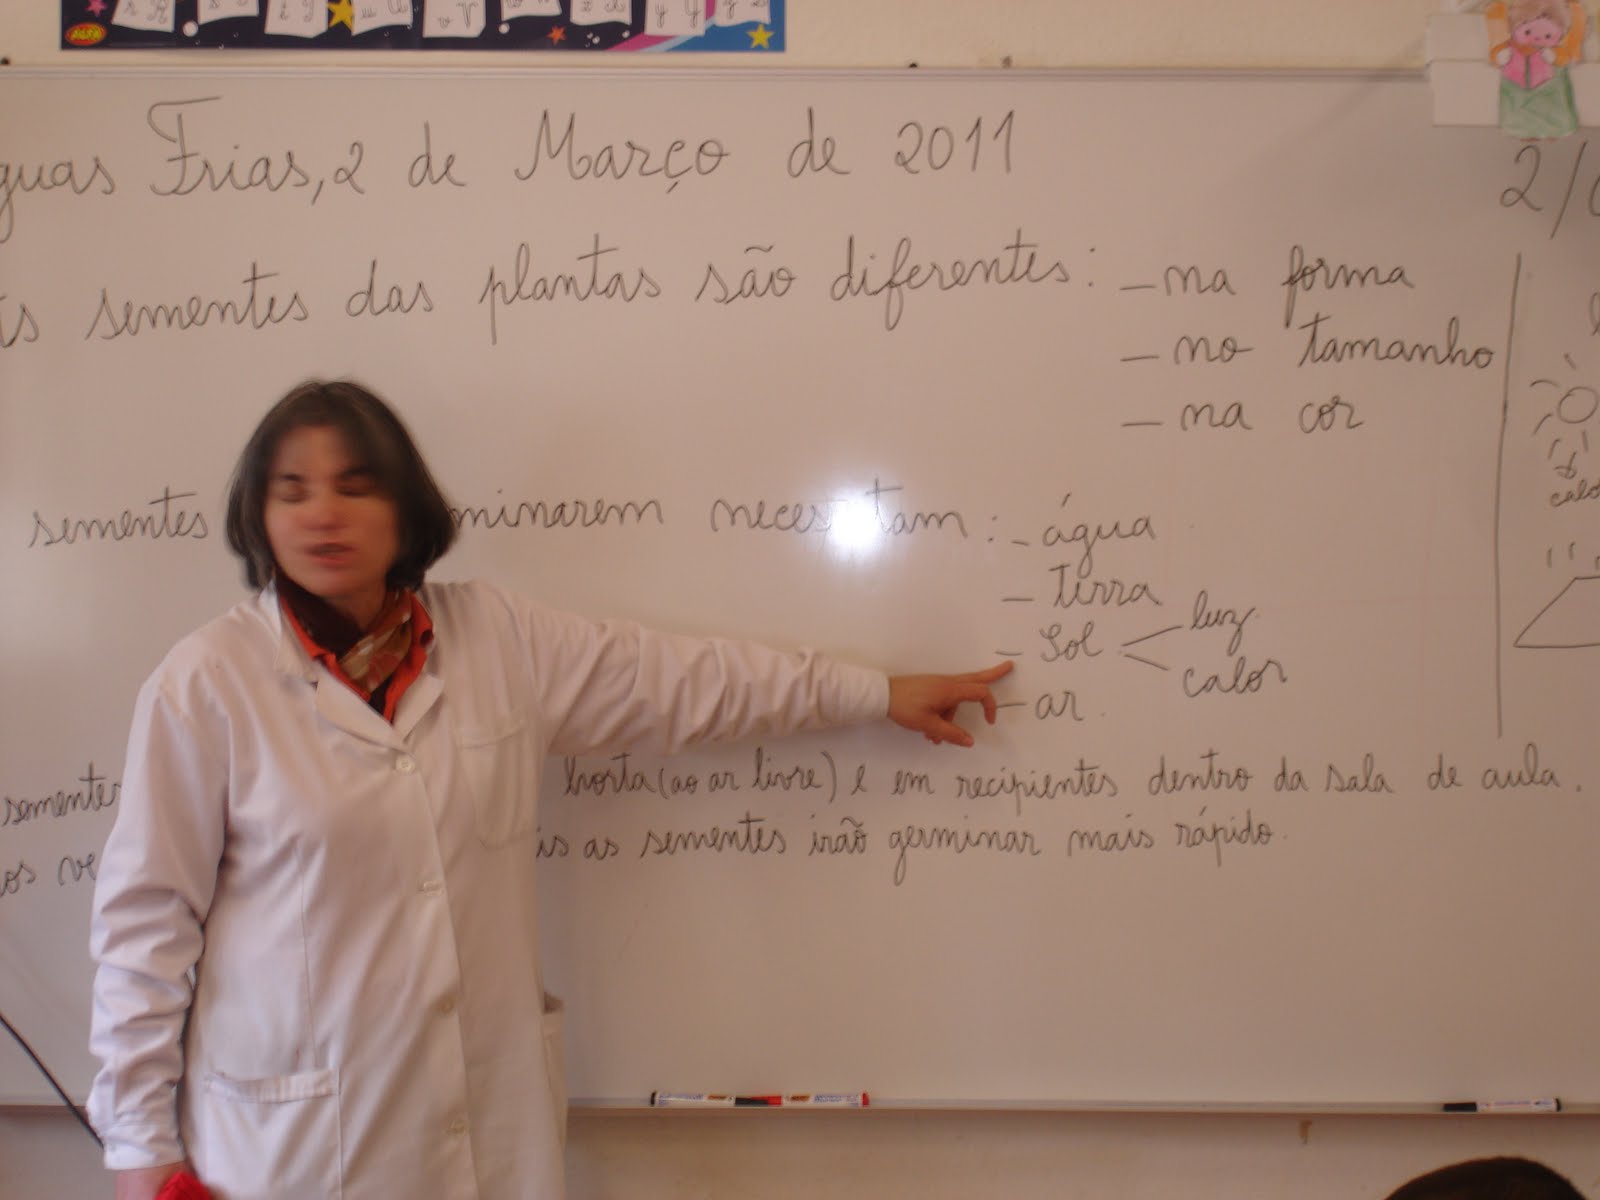 ALFA
guas Frias, 2 de Março de 2011
2/
is sementes das plantas são diferentes: - na forma
- no tamanho
- na cor
calo
sementes minarem neces tam: - água
- terra
- Sol luz
calor
- ar.
sementes horta (ao ar livre) e em recipientes dentro da sala de aula.
os ve is as sementes irão germinar mais rápido.